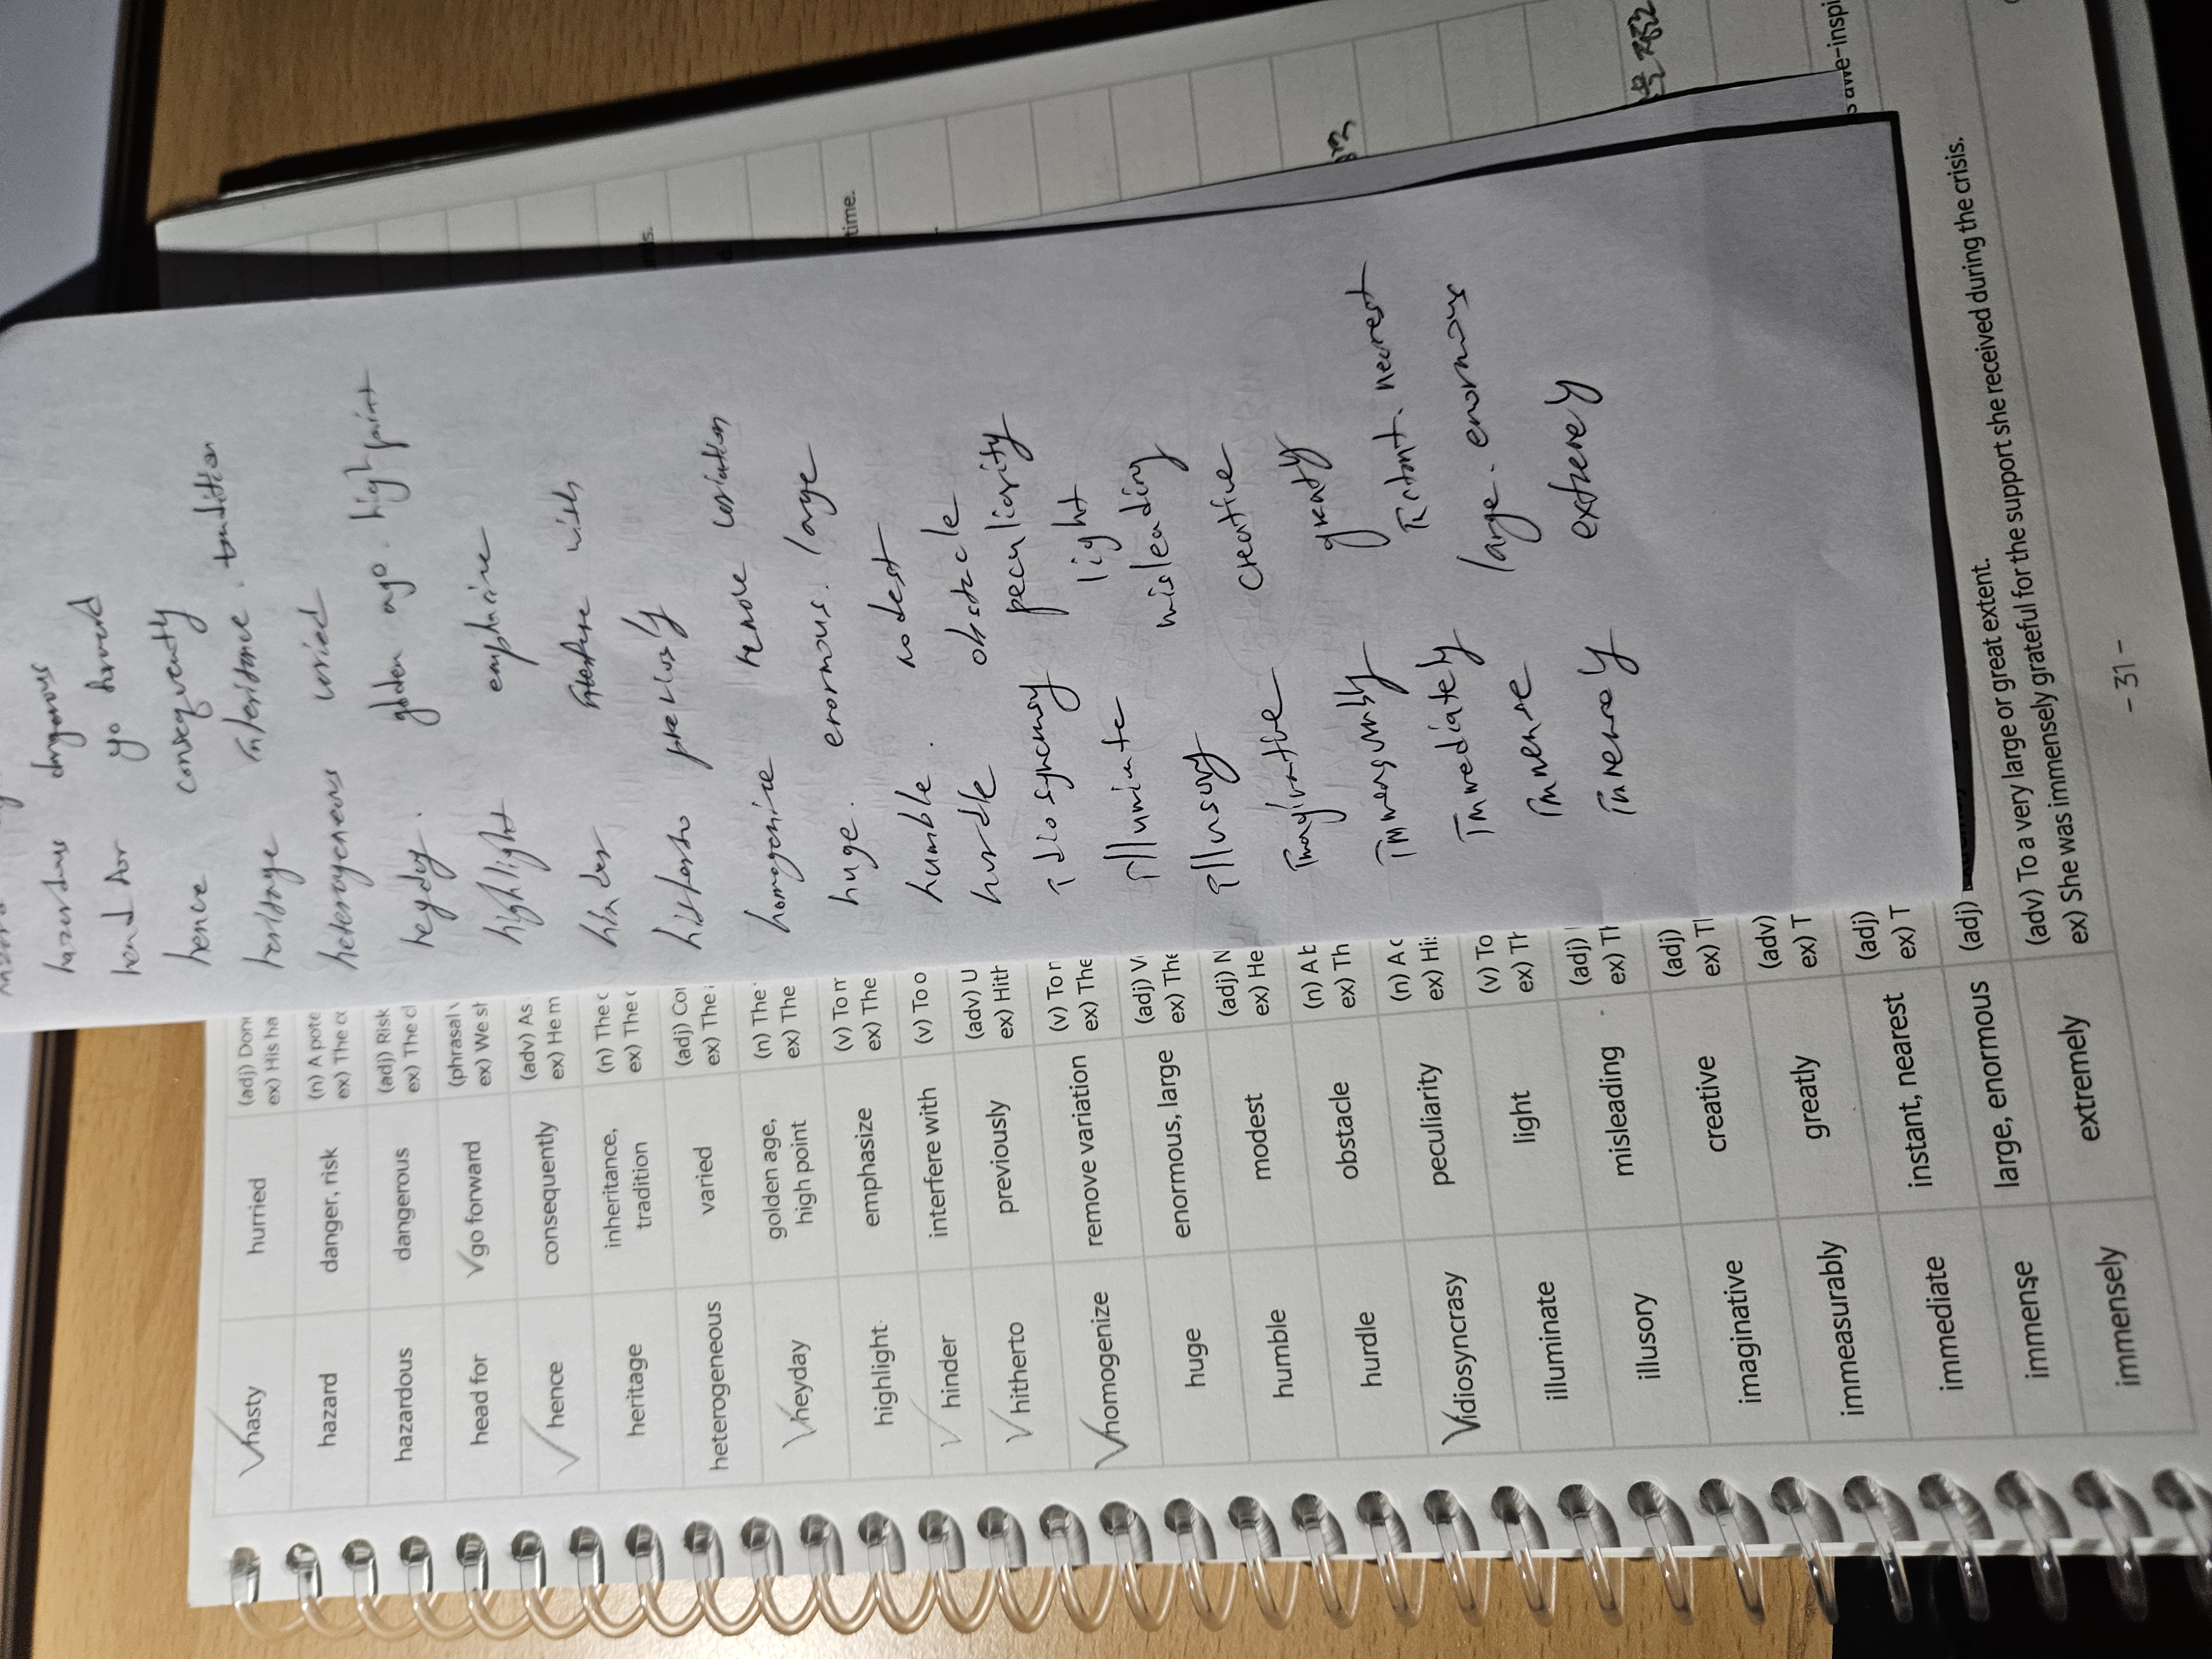 hasty hurried (adj) Done
ex) His ha
hazard danger, risk (n) A pote
ex) The co
hazardous dangerous (adj) Risk
ex) The cl
head for go forward (phrasal v
ex) We st
hence consequently (adv) As
ex) He m
heritage inheritance, tradition (n) The c
ex) The c
heterogeneous varied (adj) Co
ex) The
heyday golden age, high point (n) The
ex) The
highlight emphasize (v) To m
ex) The
hinder interfere with (v) To o
hitherto previously (adv) U
ex) Hith
homogenize remove variation (v) To r
ex) The
huge enormous, large (adj) V
ex) The
humble modest (adj) N
ex) He
hurdle obstacle (n) A b
ex) Th
idiosyncrasy peculiarity (n) A c
ex) His
illuminate light (v) To
ex) Th
illusory misleading (adj)
ex) Th
imaginative creative (adj)
ex) Tl
immeasurably greatly (adv)
ex) T
immediate instant, nearest (adj)
ex) T
immense large, enormous (adj)
immensely extremely (adv) To a very large or great extent.
ex) She was immensely grateful for the support she received during the crisis.
- 31 -
hazardous dangerous
head for go forward
hence consequently
heritage inheritance. tradition
heterogeneous varied
heyday. golden age. high point
highlight emphasize
hinder interfere with
hitherto previously
homogenize remove variation
huge. enormous. large
humble. modest
hurdle obstacle
idiosyncrasy peculiarity
illuminate light
illusory misleading
Imaginative creative
Immeasurably greatly
Immediately Instant. nearest
Immense large. enormous
Immensely extremely
time.
s awe-inspi